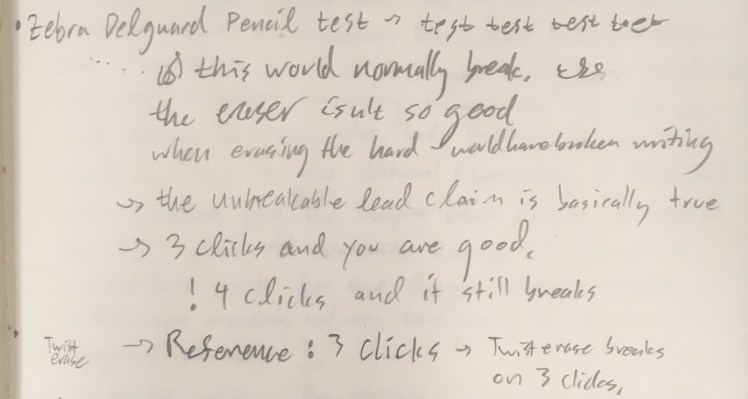 • Zebra Delguard Pencil test → test test test test
this would normally break.
the eraser isn't so good
when erasing the hard - would have broken writing
→ the unbreakable lead claim is basically true
→ 3 clicks and you are good.
! 4 clicks and it still breaks
Twist erase
→ Reference: 3 clicks → Twist erase breaks
on 3 clicks.